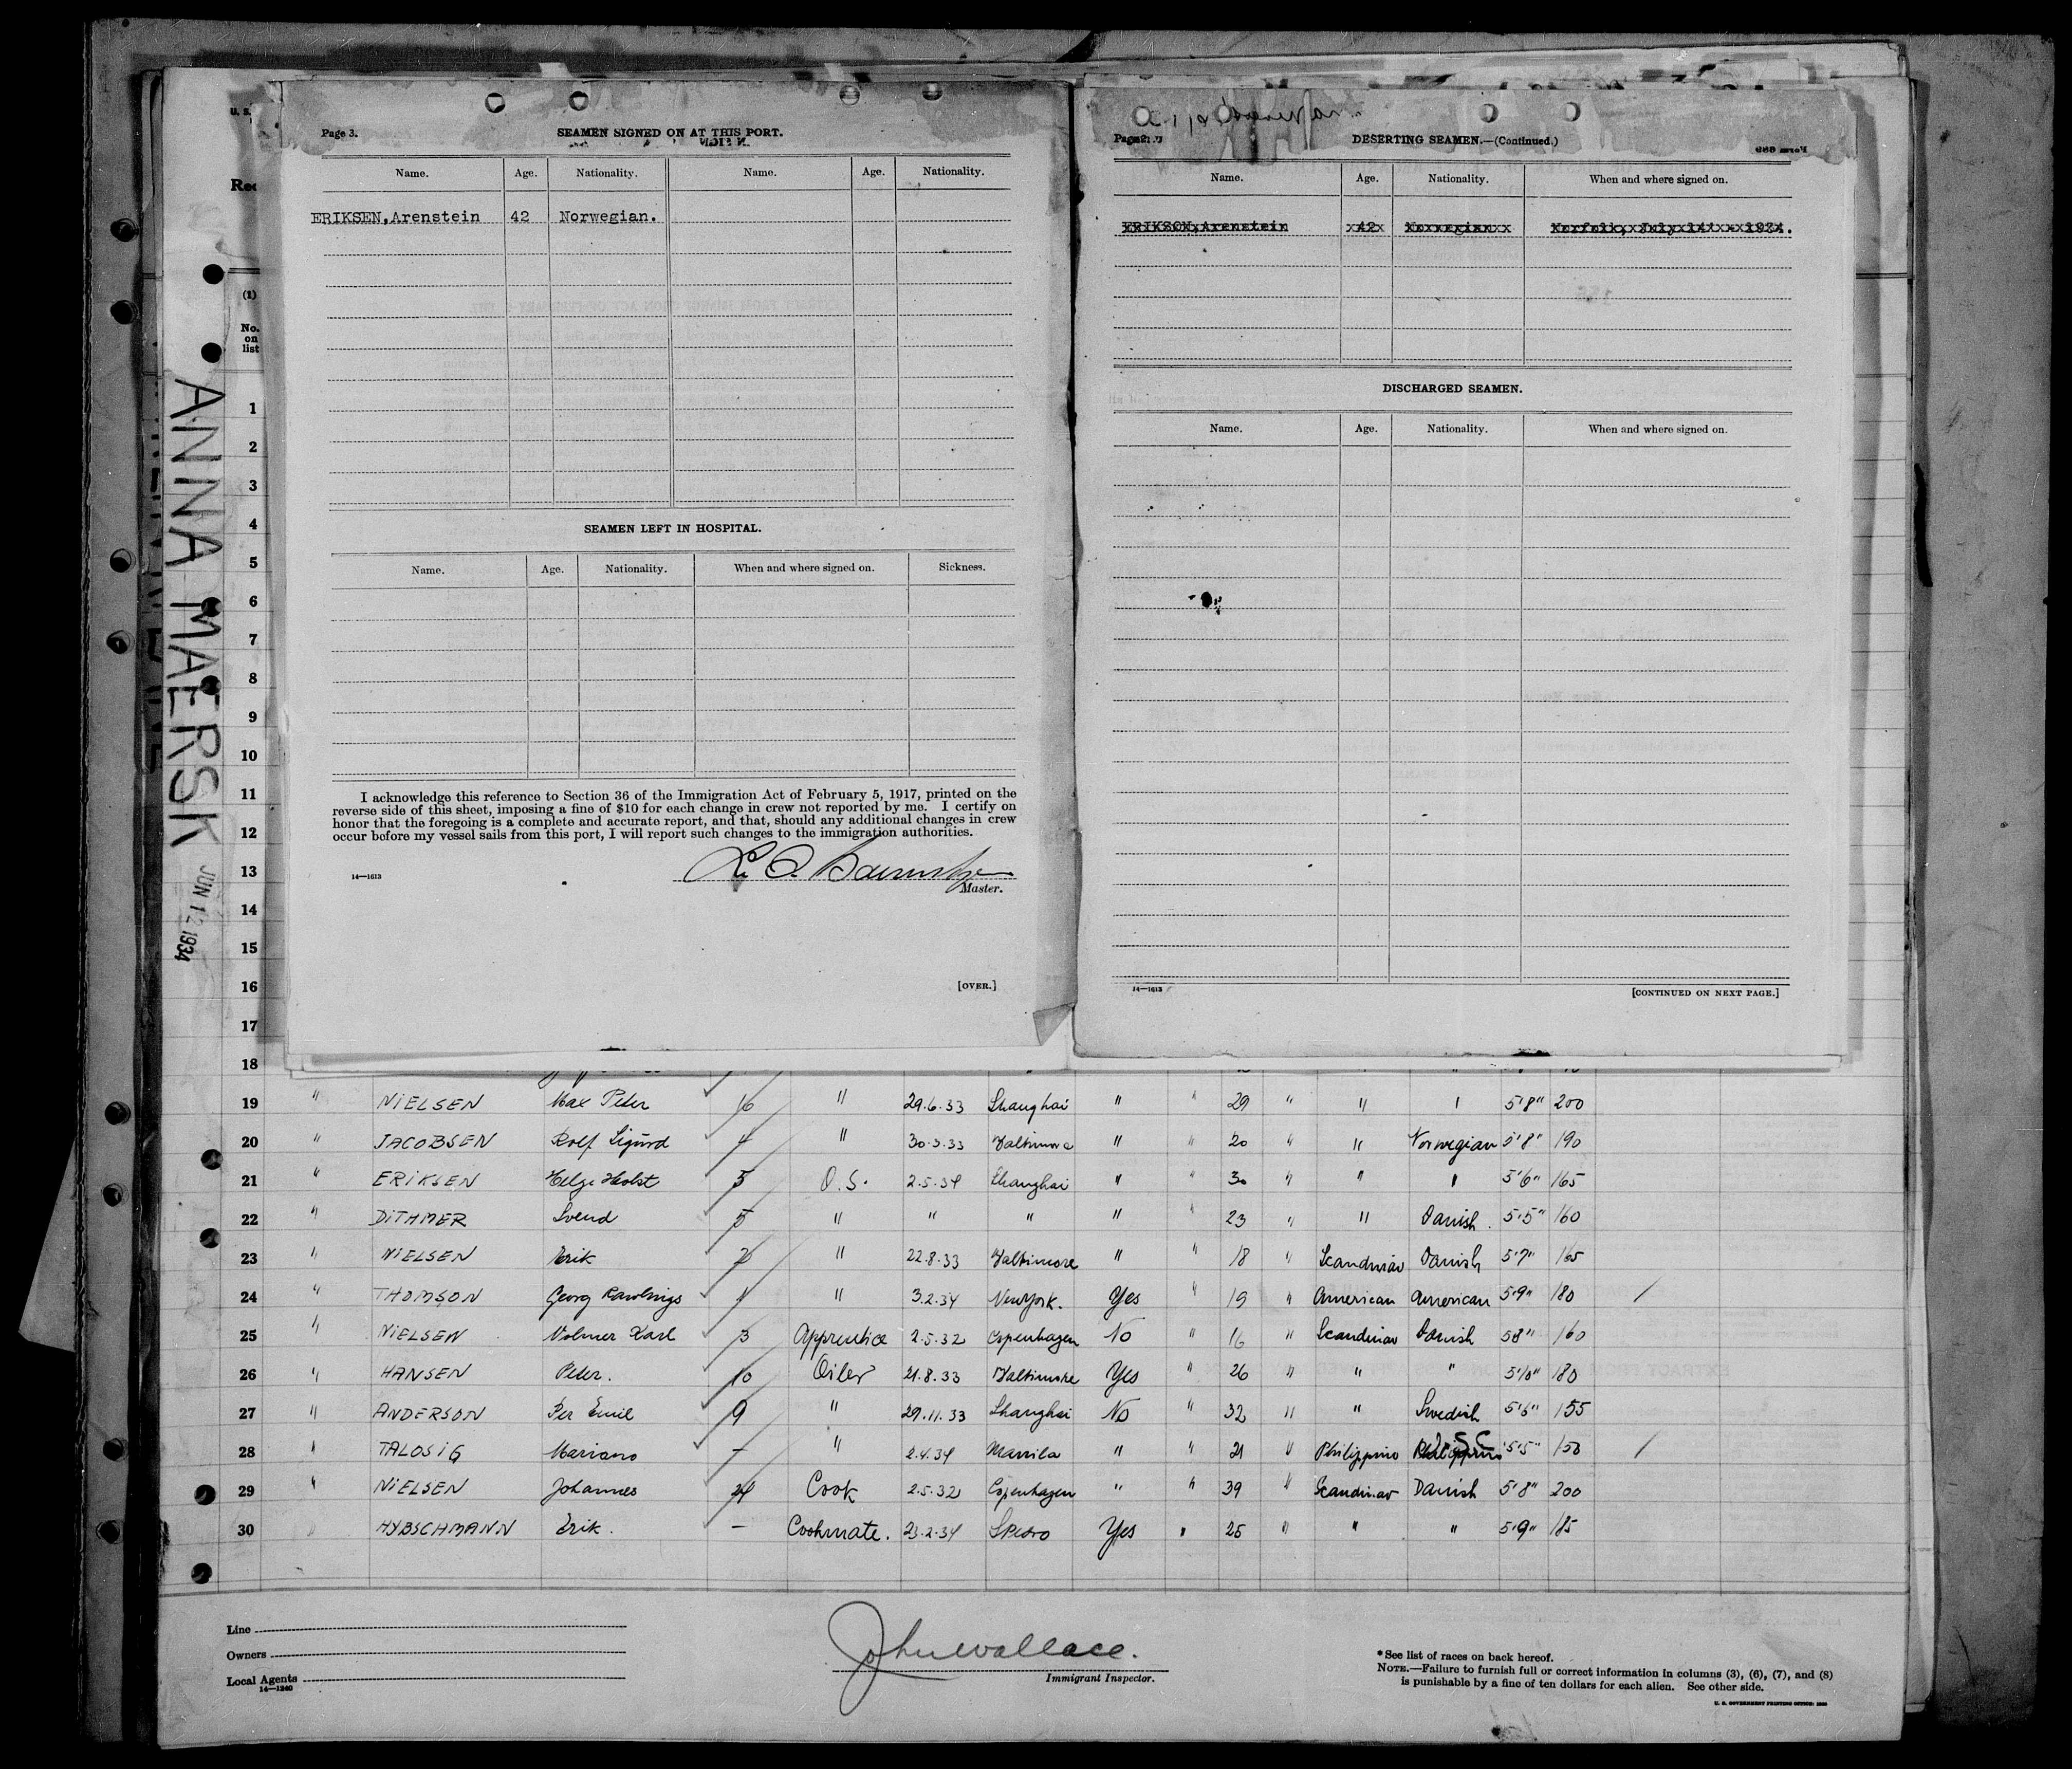 Page 3.
SEAMEN SIGNED ON AT THIS PORT.
Name. Age. Nationality. Name. Age. Nationality.
ERIKSEN,Arenstein 42 Norwegian.
SEAMEN LEFT IN HOSPITAL.
Name. Age. Nationality. When and where signed on. Sickness.
I acknowledge this reference to Section 36 of the Immigration Act of February 5, 1917, printed on the
reverse side of this sheet, imposing a fine of $10 for each change in crew not reported by me. I certify on
honor that the foregoing is a complete and accurate report, and that, should any additional changes in crew
occur before my vessel sails from this port, I will report such changes to the immigration authorities.
14—1613
Master.
[OVER.]
DESERTING SEAMEN.—(Continued.)
Name. Age. Nationality. When and where signed on.
DISCHARGED SEAMEN.
Name. Age. Nationality. When and where signed on.
14—1613
[CONTINUED ON NEXT PAGE.]
U. S.
(1)
No.
on
list
ANNA MAERSK
JUN 12 1934
1
2
3
4
5
6
7
8
9
10
11
12
13
14
15
16
17
18
19 " NIELSEN Max Peter 16 " 29.6.33 Shanghai " " 29 " " " 5'8" 200
20 " JACOBSEN Rolf Sigurd 4 " 30.5.33 Baltimore " " 20 " " Norwegian 5'8" 190
21 " ERIKSEN Helge Holst 5 O.S. 2.5.34 Shanghai " " 30 " " " 5'6" 165
22 " DITHMER Svend 5 " " " " " 23 " " Danish. 5'5" 160
23 " NIELSEN Erik 2 " 22.8.33 Baltimore " " 18 " Scandinav Danish 5'7" 165
24 " THOMSON Georg Rawlings 1 " 3.2.34 New York. Yes " 19 " American American 5'9" 180 /
25 " NIELSEN Volmer Karl 3 Apprentice 2.5.32 Copenhagen No " 16 " Scandinav Danish 5'8" 160
26 " HANSEN Peter. 10 Oiler 21.8.33 Baltimore Yes " 26 " " " 5'10" 180
27 " ANDERSON Per Emil 9 " 29.11.33 Shanghai No " 32 " " Swedish 5'6" 155
28 " TALOSIG Mariano — " 2.4.34 Manila " " 21 " Philippino USC 5'5" 150 /
29 " NIELSEN Johannes 24 Cook 2.5.32 Copenhagen " " 39 " Scandinav Danish 5'8" 200
30 " HYBSCHMANN Erik. — Cookmate. 23.2.34 S Pedro Yes " 25 " " " 5'9" 185
Line
Owners
Local Agents
14—1240
John Wallace.
Immigrant Inspector.
* See list of races on back hereof.
NOTE.—Failure to furnish full or correct information in columns (3), (6), (7), and (8)
is punishable by a fine of ten dollars for each alien. See other side.